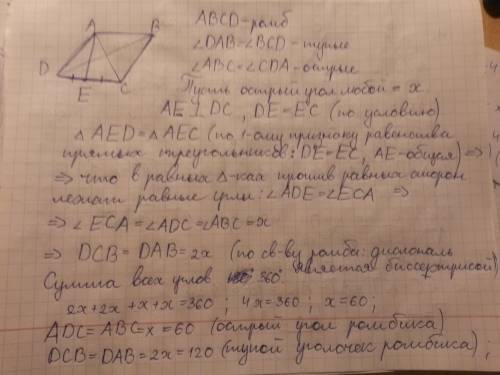 A B
D E C
ABCD - ромб
∠DAB = ∠BCD - тупые
∠ABC = ∠CDA - острые
Пусть острый угол любой = x
AE ⊥ DC, DE = EC (по условию)
△AED = △AEC (по 1-ому признаку равенства
прямых треугольников: DE = EC, AE - общая) ⇒
⇒ что в равных △-ках против равных сторон
лежат равные углы: ∠ADE = ∠ECA ⇒
⇒ ∠ECA = ∠ADC = ∠ABC = x
⇒ DCB = DAB = 2x (по св-ву ромба: диагональ
является биссектрисой)
Сумма всех углов 360°
2x + 2x + x + x = 360 ; 4x = 360 ; x = 60 ;
ADC = ABC = x = 60 (острый угол ромбика)
DCB = DAB = 2x = 120 (тупой уголочек ромбика) ;